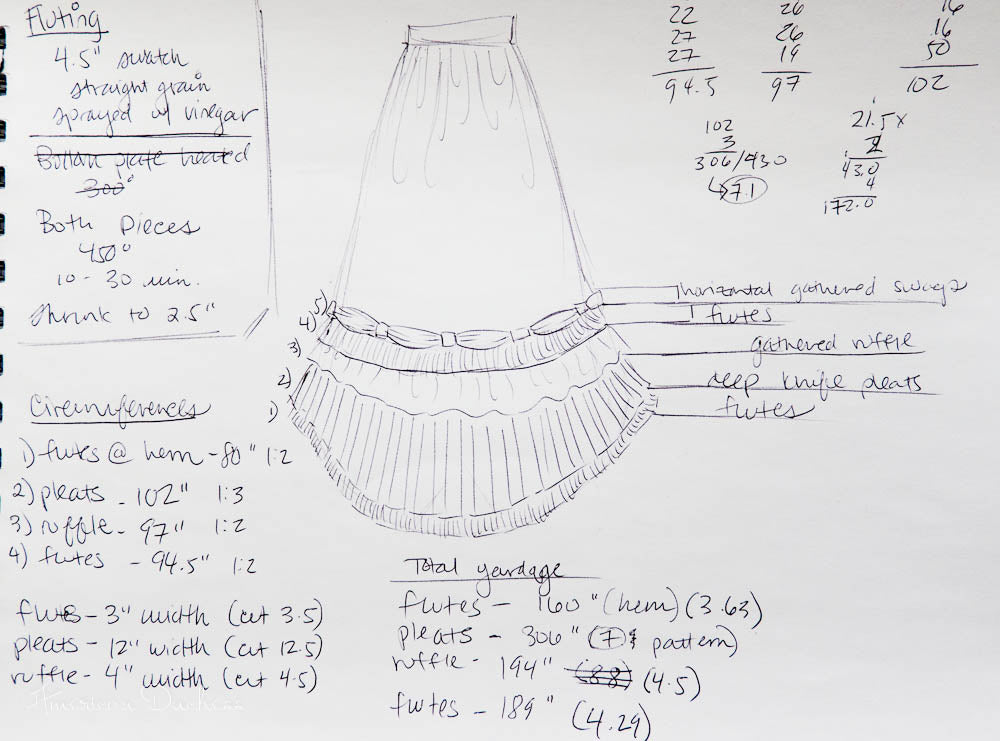 Fluting
4.5" swatch
straight grain
sprayed w/ vinegar
Bottom plate heated
300°
Both Pieces
450°
10 - 30 min.
Shrink to 2.5"
22
27
27
94.5
26
26
19
97
16
16
50
102
102
3
306/430
7.1
21.5x
2
43.0
4
172.0
5)
4)
3)
2)
1)
horizontal gathered swags
flutes
gathered ruffle
deep knife pleats
flutes
Circumferences
1) flutes @ hem - 80" 1:2
2) pleats - 102" 1:3
3) ruffle - 97" 1:2
4) flutes - 94.5" 1:2
flutes - 3" width (cut 3.5)
pleats - 12" width (cut 12.5)
ruffle - 4" width (cut 4.5)
American Duchess
Total yardage
flutes - 160" (hem) (3.63)
pleats - 306" (7 pattern)
ruffle - 194" (88) (4.5)
flutes - 189" (4.29)